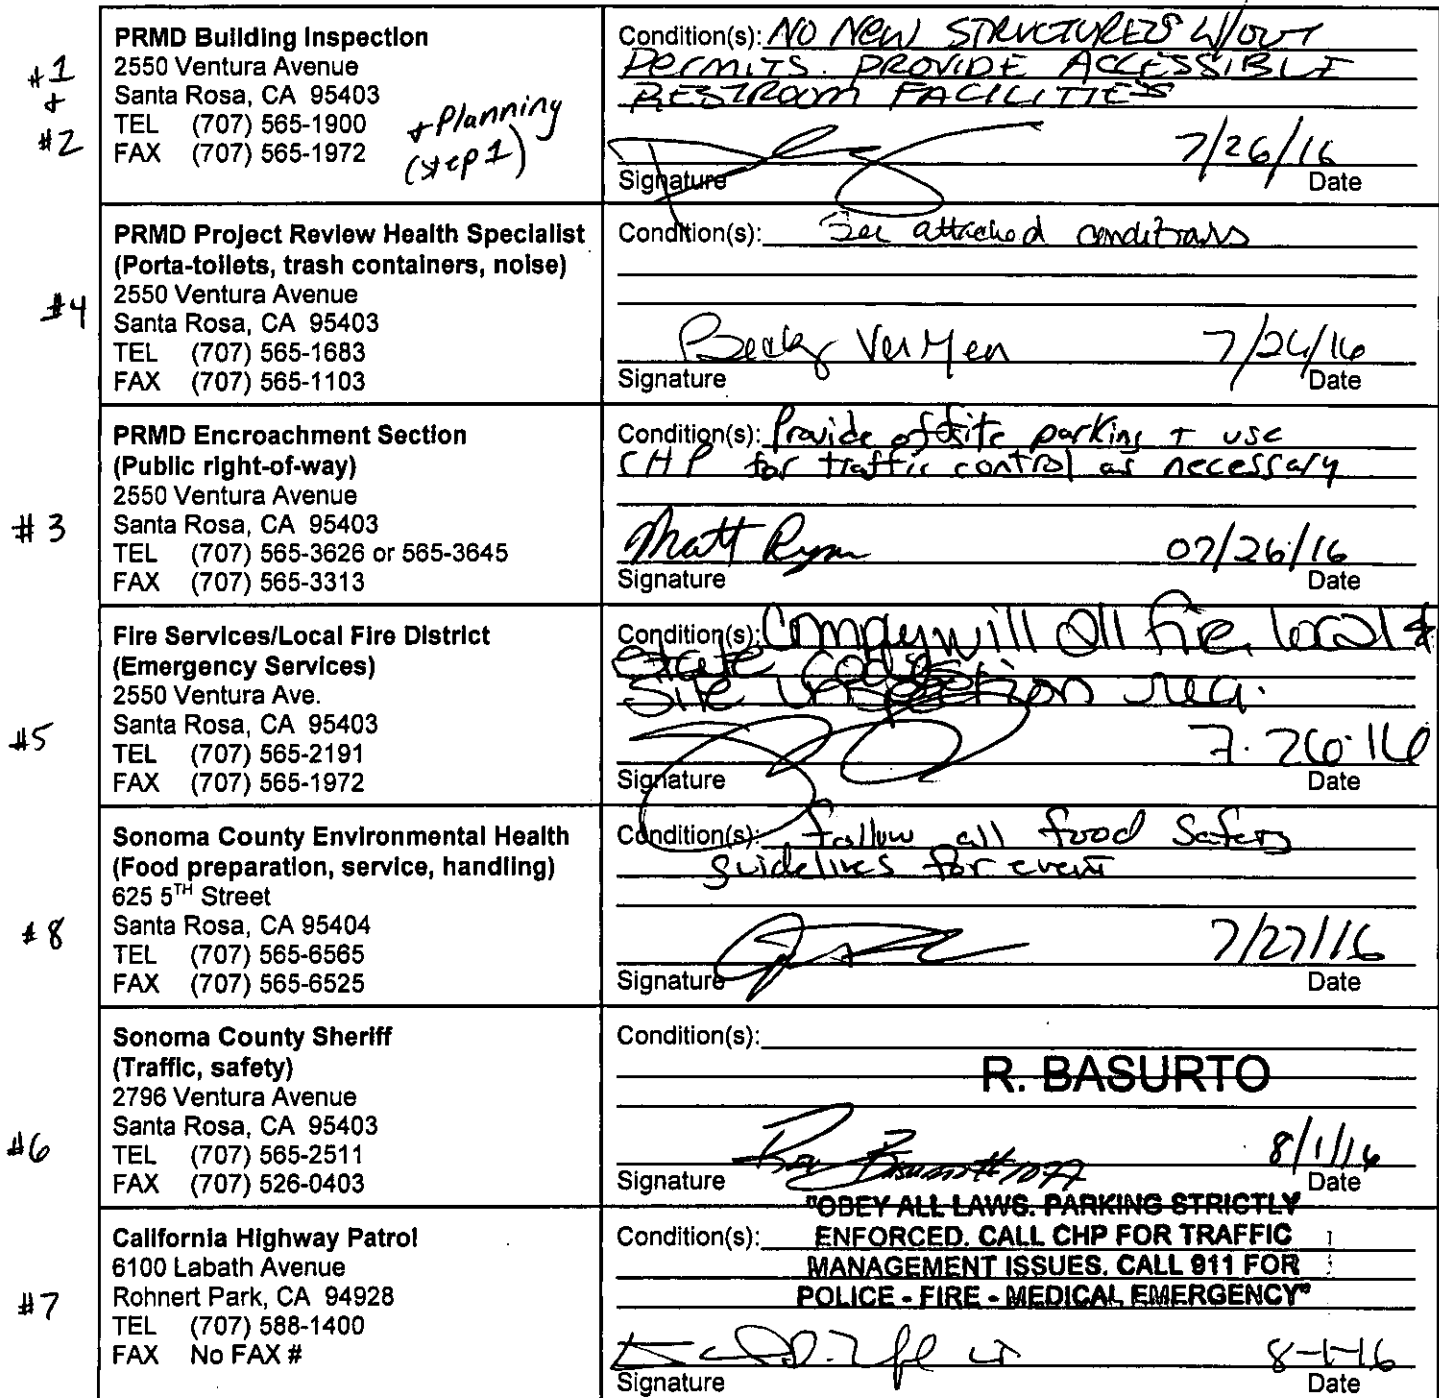 #1
+
#2
PRMD Building Inspection
2550 Ventura Avenue
Santa Rosa, CA 95403
TEL (707) 565-1900
FAX (707) 565-1972
+ Planning
(step 1)
Condition(s): NO NEW STRUCTURES W/OUT
PERMITS. PROVIDE ACCESSIBLE
RESTROOM FACILITIES
7/26/16
Signature Date
#4
PRMD Project Review Health Specialist
(Porta-toilets, trash containers, noise)
2550 Ventura Avenue
Santa Rosa, CA 95403
TEL (707) 565-1683
FAX (707) 565-1103
Condition(s): See attached conditions
Becky Ver Meer 7/26/16
Signature Date
#3
PRMD Encroachment Section
(Public right-of-way)
2550 Ventura Avenue
Santa Rosa, CA 95403
TEL (707) 565-3626 or 565-3645
FAX (707) 565-3313
Condition(s): Provide offsite parking + use
CHP for traffic control as necessary
Matt Ryan 07/26/16
Signature Date
#5
Fire Services/Local Fire District
(Emergency Services)
2550 Ventura Ave.
Santa Rosa, CA 95403
TEL (707) 565-2191
FAX (707) 565-1972
Condition(s): Comply will all fire, local &
state codes
Site inspection req.
7.26.16
Signature Date
#8
Sonoma County Environmental Health
(Food preparation, service, handling)
625 5TH Street
Santa Rosa, CA 95404
TEL (707) 565-6565
FAX (707) 565-6525
Condition(s): Follow all food Safety
guidelines for event
7/27/16
Signature Date
#6
Sonoma County Sheriff
(Traffic, safety)
2796 Ventura Avenue
Santa Rosa, CA 95403
TEL (707) 565-2511
FAX (707) 526-0403
Condition(s):
R. BASURTO
#1077 8/1/16
Signature Date
#7
California Highway Patrol
6100 Labath Avenue
Rohnert Park, CA 94928
TEL (707) 588-1400
FAX No FAX #
"OBEY ALL LAWS. PARKING STRICTLY
Condition(s): ENFORCED. CALL CHP FOR TRAFFIC
MANAGEMENT ISSUES. CALL 911 FOR
POLICE - FIRE - MEDICAL EMERGENCY"
8-1-16
Signature Date